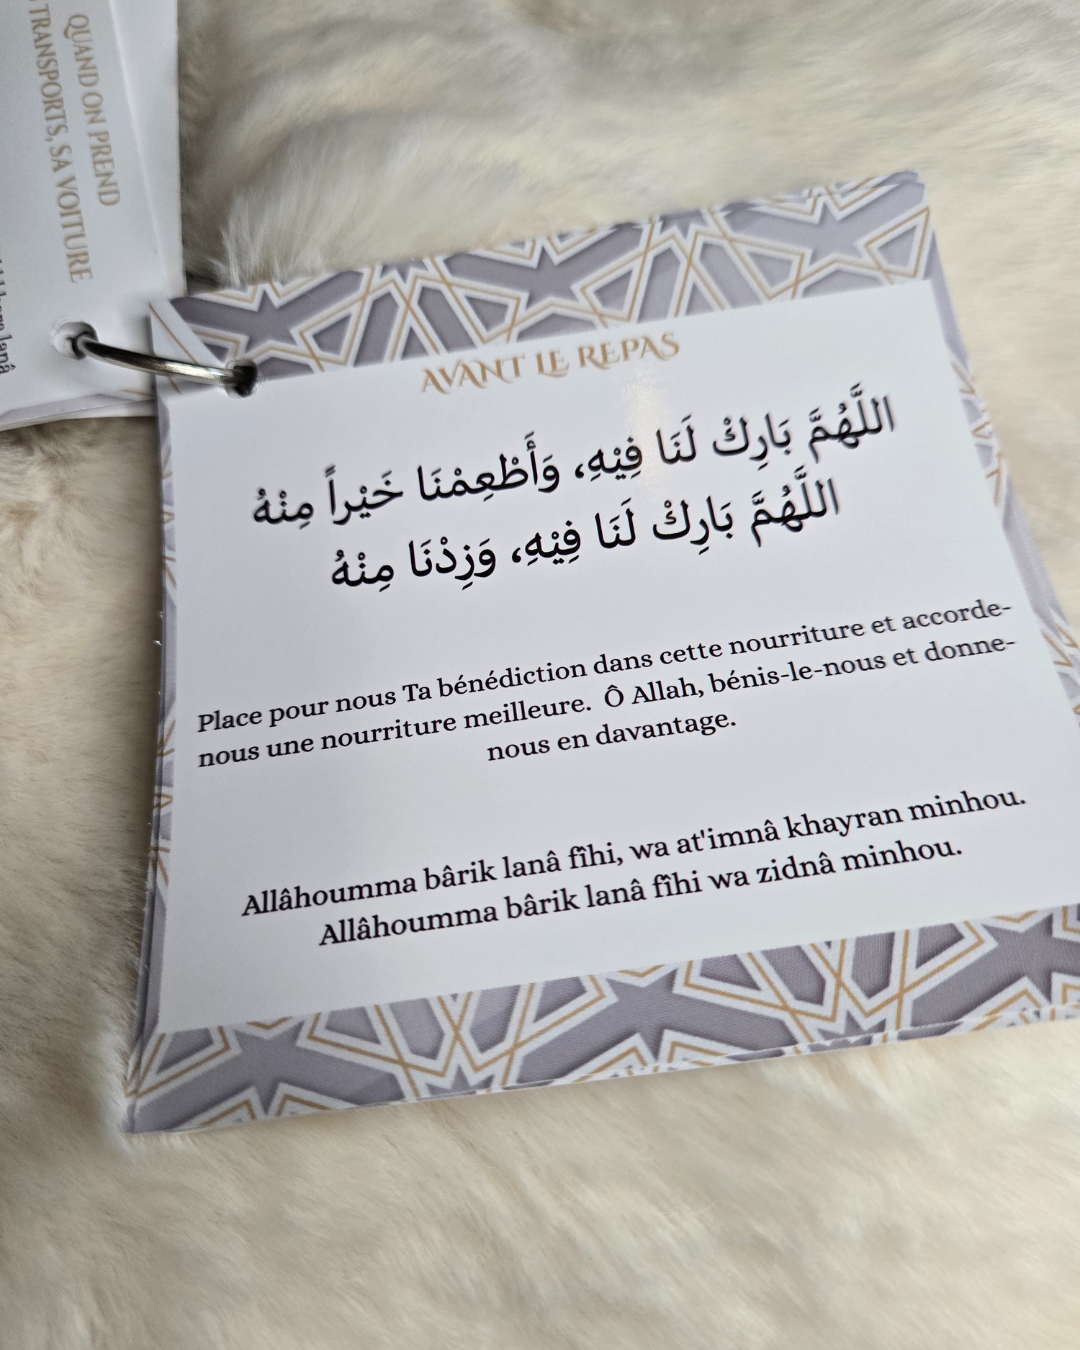 QUAND ON PREND
TRANSPORTS, SA VOITURE
AVANT LE REPAS
اللَّهُمَّ بَارِكْ لَنَا فِيْهِ، وَأَطْعِمْنَا خَيْراً مِنْهُ
اللَّهُمَّ بَارِكْ لَنَا فِيْهِ، وَزِدْنَا مِنْهُ
Place pour nous Ta bénédiction dans cette nourriture et accorde-
nous une nourriture meilleure. Ô Allah, bénis-le-nous et donne-
nous en davantage.
Allâhoumma bârik lanâ fîhi, wa at'imnâ khayran minhou.
Allâhoumma bârik lanâ fîhi wa zidnâ minhou.